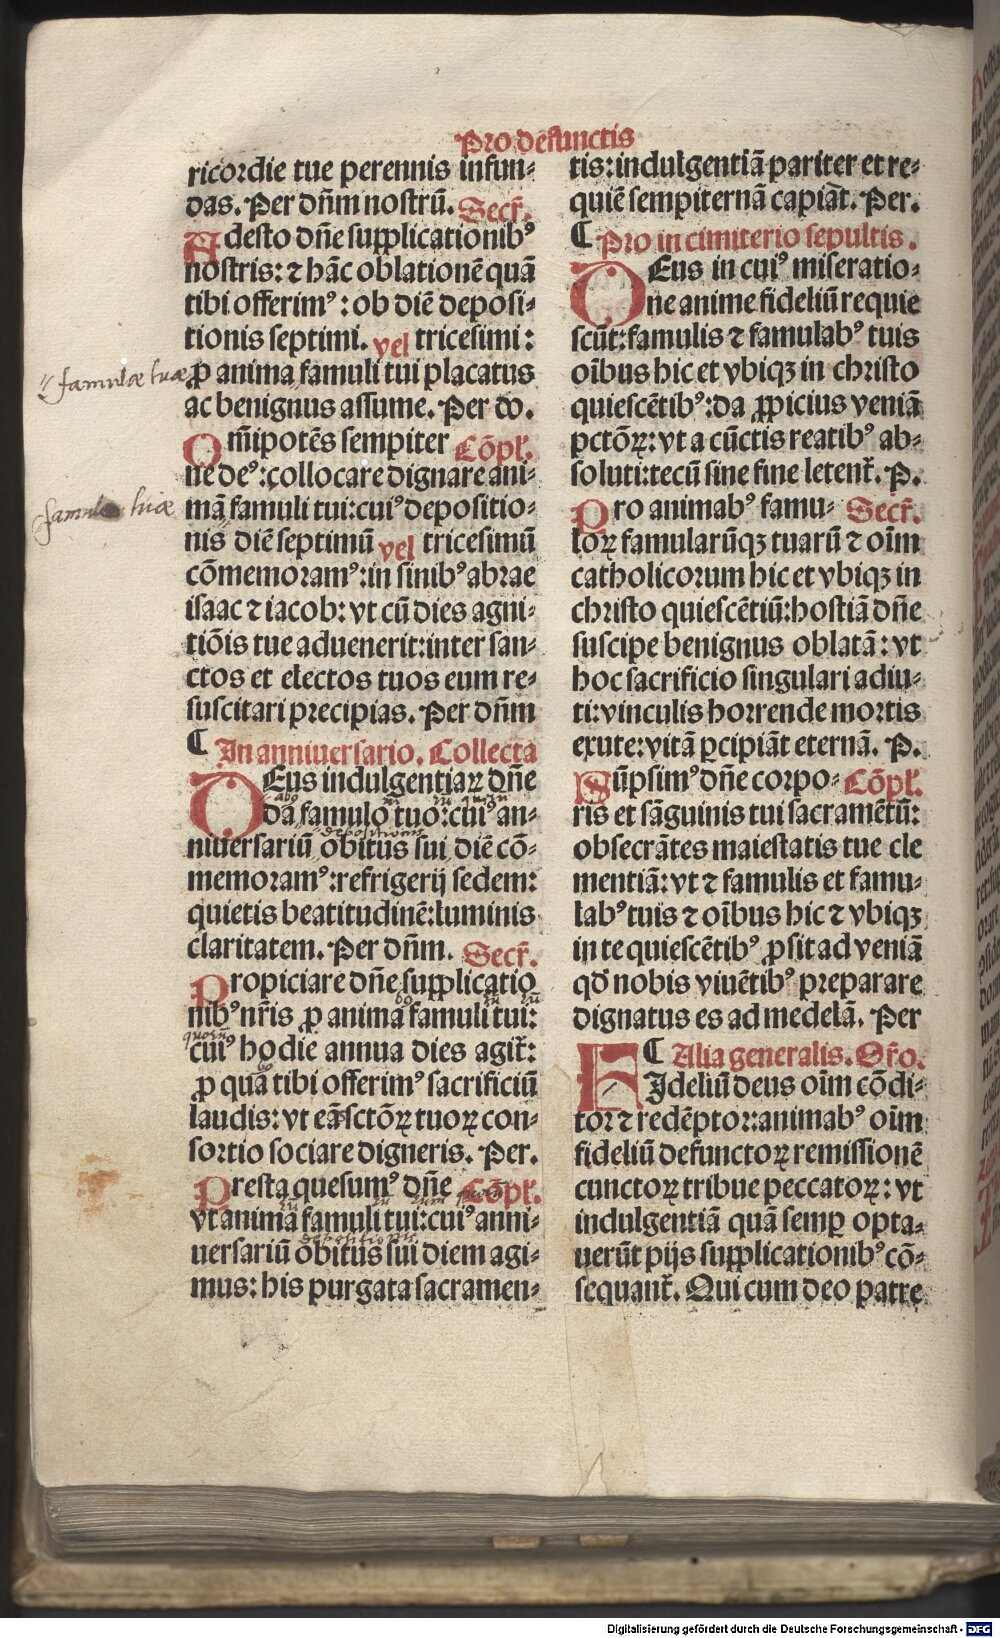 Pro defunctis
ricordie tue perennis infun⸗
das. Per dñm nostrū. Secr̄.
Adesto dñe supplicationibꝰ
nostris: ⁊ hãc oblationē quã
tibi offerimꝰ: ob diē deposi⸗
tionis septimi. vel tricesimi:
famulæ tuæ
ꝓ anima famuli tui placatus
ac benignus assume. Per do.
Om̄ipotēs sempiter Cōpl̄.
ne deꝰ: collocare dignare ani⸗
famulæ tuæ
mã famuli tui: cuiꝰ depositio⸗
nis diē septimū vel tricesimū
cōmemoramꝰ: in sinibꝰ abrae
isaac ⁊ iacob: vt cū dies agni⸗
tiōis tue aduenerit: inter san⸗
ctos et electos tuos eum re⸗
suscitari precipias. Per dñm
¶ In anniuersario. Collecta
DEus indulgentiaꝝ dñe
abꝰ rū rū quorū
da famulo tuo: cuiꝰ an⸗
depositionis
niuersariū obitus sui diē cō⸗
memoramꝰ: refrigerij sedem:
quietis beatitudinē: luminis
claritatem. Per dñm. Secr̄.
Propiciare dñe supplicatio
bꝰ rū rū
nibꝰ nr̄is ꝓ anima famuli tui:
quorū
cuiꝰ hodie annua dies agit̄:
ꝓ qua tibi offerimꝰ sacrificiū
laudis: vt eã sctōꝝ tuoꝝ con⸗
sortio sociare digneris. Per.
Presta quesumꝰ dñe Cōpl̄.
rū rū rum quorū
vt anima famuli tui: cuiꝰ anni⸗
depositionis
uersariū obitus sui diem agi⸗
mus: his purgata sacramen⸗
tis: indulgentiã pariter et re⸗
quiē sempiternã capiãt. Per.
¶ Pro in cimiterio sepultis.
DEus in cuiꝰ miseratio⸗
ne anime fideliū requie
scūt: famulis ⁊ famulabꝰ tuis
oībus hic et vbiqꝫ in christo
quiescētibꝰ: da ꝓpicius veniã
pctōꝝ: vt a cūctis reatibꝰ ab⸗
soluti: tecū sine fine letent̄. P.
Pro animabꝰ famu⸗ Secr̄.
loꝝ famularūqꝫ tuarū ⁊ oīm
catholicorum hic et vbiqꝫ in
christo quiescētiū: hostiã dñe
suscipe benignus oblatã: vt
hoc sacrificio singulari adiu⸗
ti: vinculis horrende mortis
exute: vitã ꝑcipiãt eternã. P.
Sūpsimꝰ dñe corpo⸗ Cōpl̄.
ris et sãguinis tui sacramētū:
obsecrãtes maiestatis tue cle
mentiã: vt ⁊ famulis et famu⸗
labꝰ tuis ⁊ oībus hic ⁊ vbiqꝫ
in te quiescētibꝰ ꝓsit ad veniã
qđ nobis viuētibꝰ preparare
dignatus es ad medelã. Per
¶ Alia generalis. Or̄o.
FIdeliū deus oīm cōdi⸗
tor ⁊ redēptor: animabꝰ oīm
fideliū defunctoꝝ remissionē
cunctoꝝ tribue peccatoꝝ: vt
indulgentiã quã semꝑ opta⸗
uerūt pijs supplicationibꝰ cō⸗
sequant̄. Qui cum deo patre
Digitalisierung gefördert durch die Deutsche Forschungsgemeinschaft - DFG